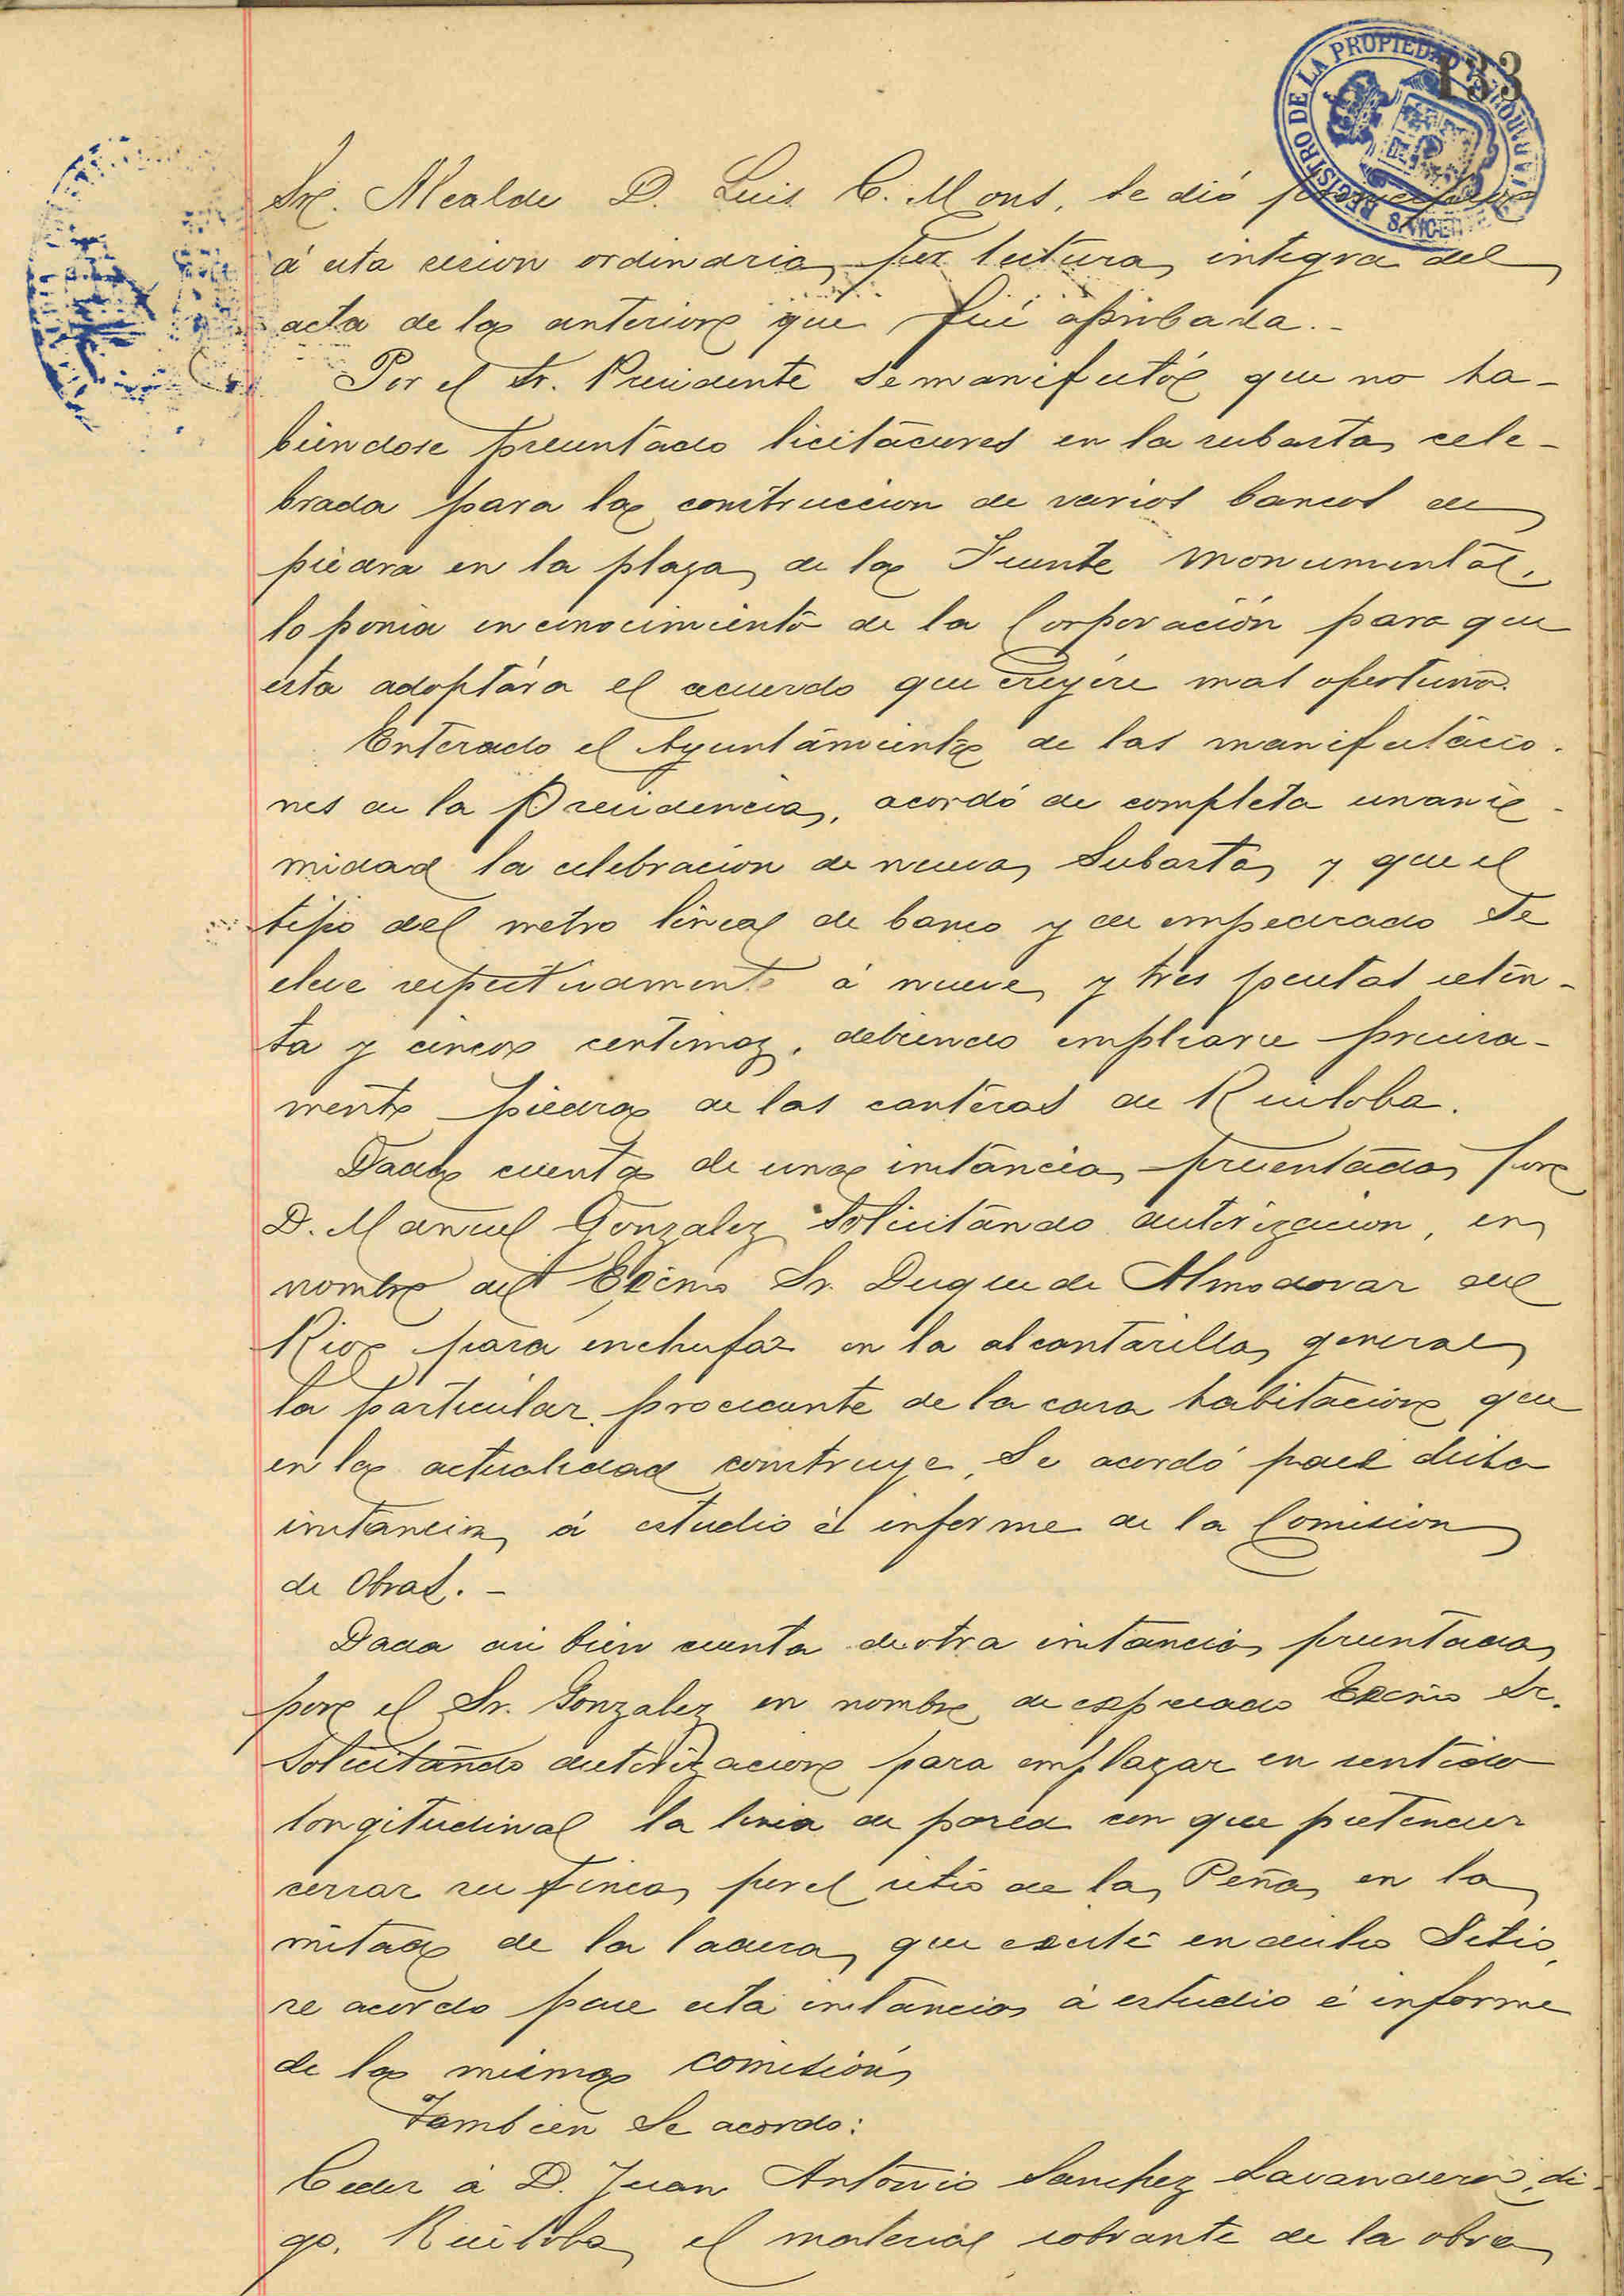 133
REGISTRO DE LA PROPIEDAD
Sr. Alcalde D. Luis C. Mons, se dió principio
á esta sesion ordinaria por lectura integra del
acta de la anterior que fué aprobada.-
Por el Sr. Presidente se manifestó que no ha-
biendose presentado licitadores en la subasta cele-
brada para la construccion de varios bancos de
piedra en la plaza de la Fuente monumental,
lo ponia en conocimiento de la Corporación para que
esta adoptára el acuerdo que creyere mas oportuno.
Enterado el Ayuntamiento de las manifestacio-
nes de la Presidencia, acordó de completa unani-
midad la celebracion de nueva Subasta y que el
tipo del metro lineal de banco y de empedrado se
eleve respectivamente á nueve y tres pesetas seten-
ta y cinco centimos, debiendo emplearse precisa-
mente piedra de las canteras de Ruiloba.
Dada cuenta de una instancia presentada por
D. Manuel Gonzalez solicitando autorizacion, en
nombre del Excmo Sr. Duque de Almodovar del
Rio para enchufar en la alcantarilla general
la particular procedente de la casa habitacion que
en la actualidad construye, Se acordó pase dicha
instancia á estudio é informe de la Comision
de Obras.-
Dada asi bien cuenta de otra instancia presentada
por el Sr. Gonzalez en nombre de expresado Excmo Sr.
Solicitando autorizacion para emplazar en sentido
longitudinal la linea de pared con que pretender
cerrar su finca por el sitio de la Peña en la
mitad de la ladera que existe en dicho Sitio,
se acordo pase esta instancia á estudio é informe
de la misma comisión
Tambien Se acordo:
Ceder á D. Juan Antonio Sanchez Lavandero, di-
go, Ruiloba el material sobrante de la obra